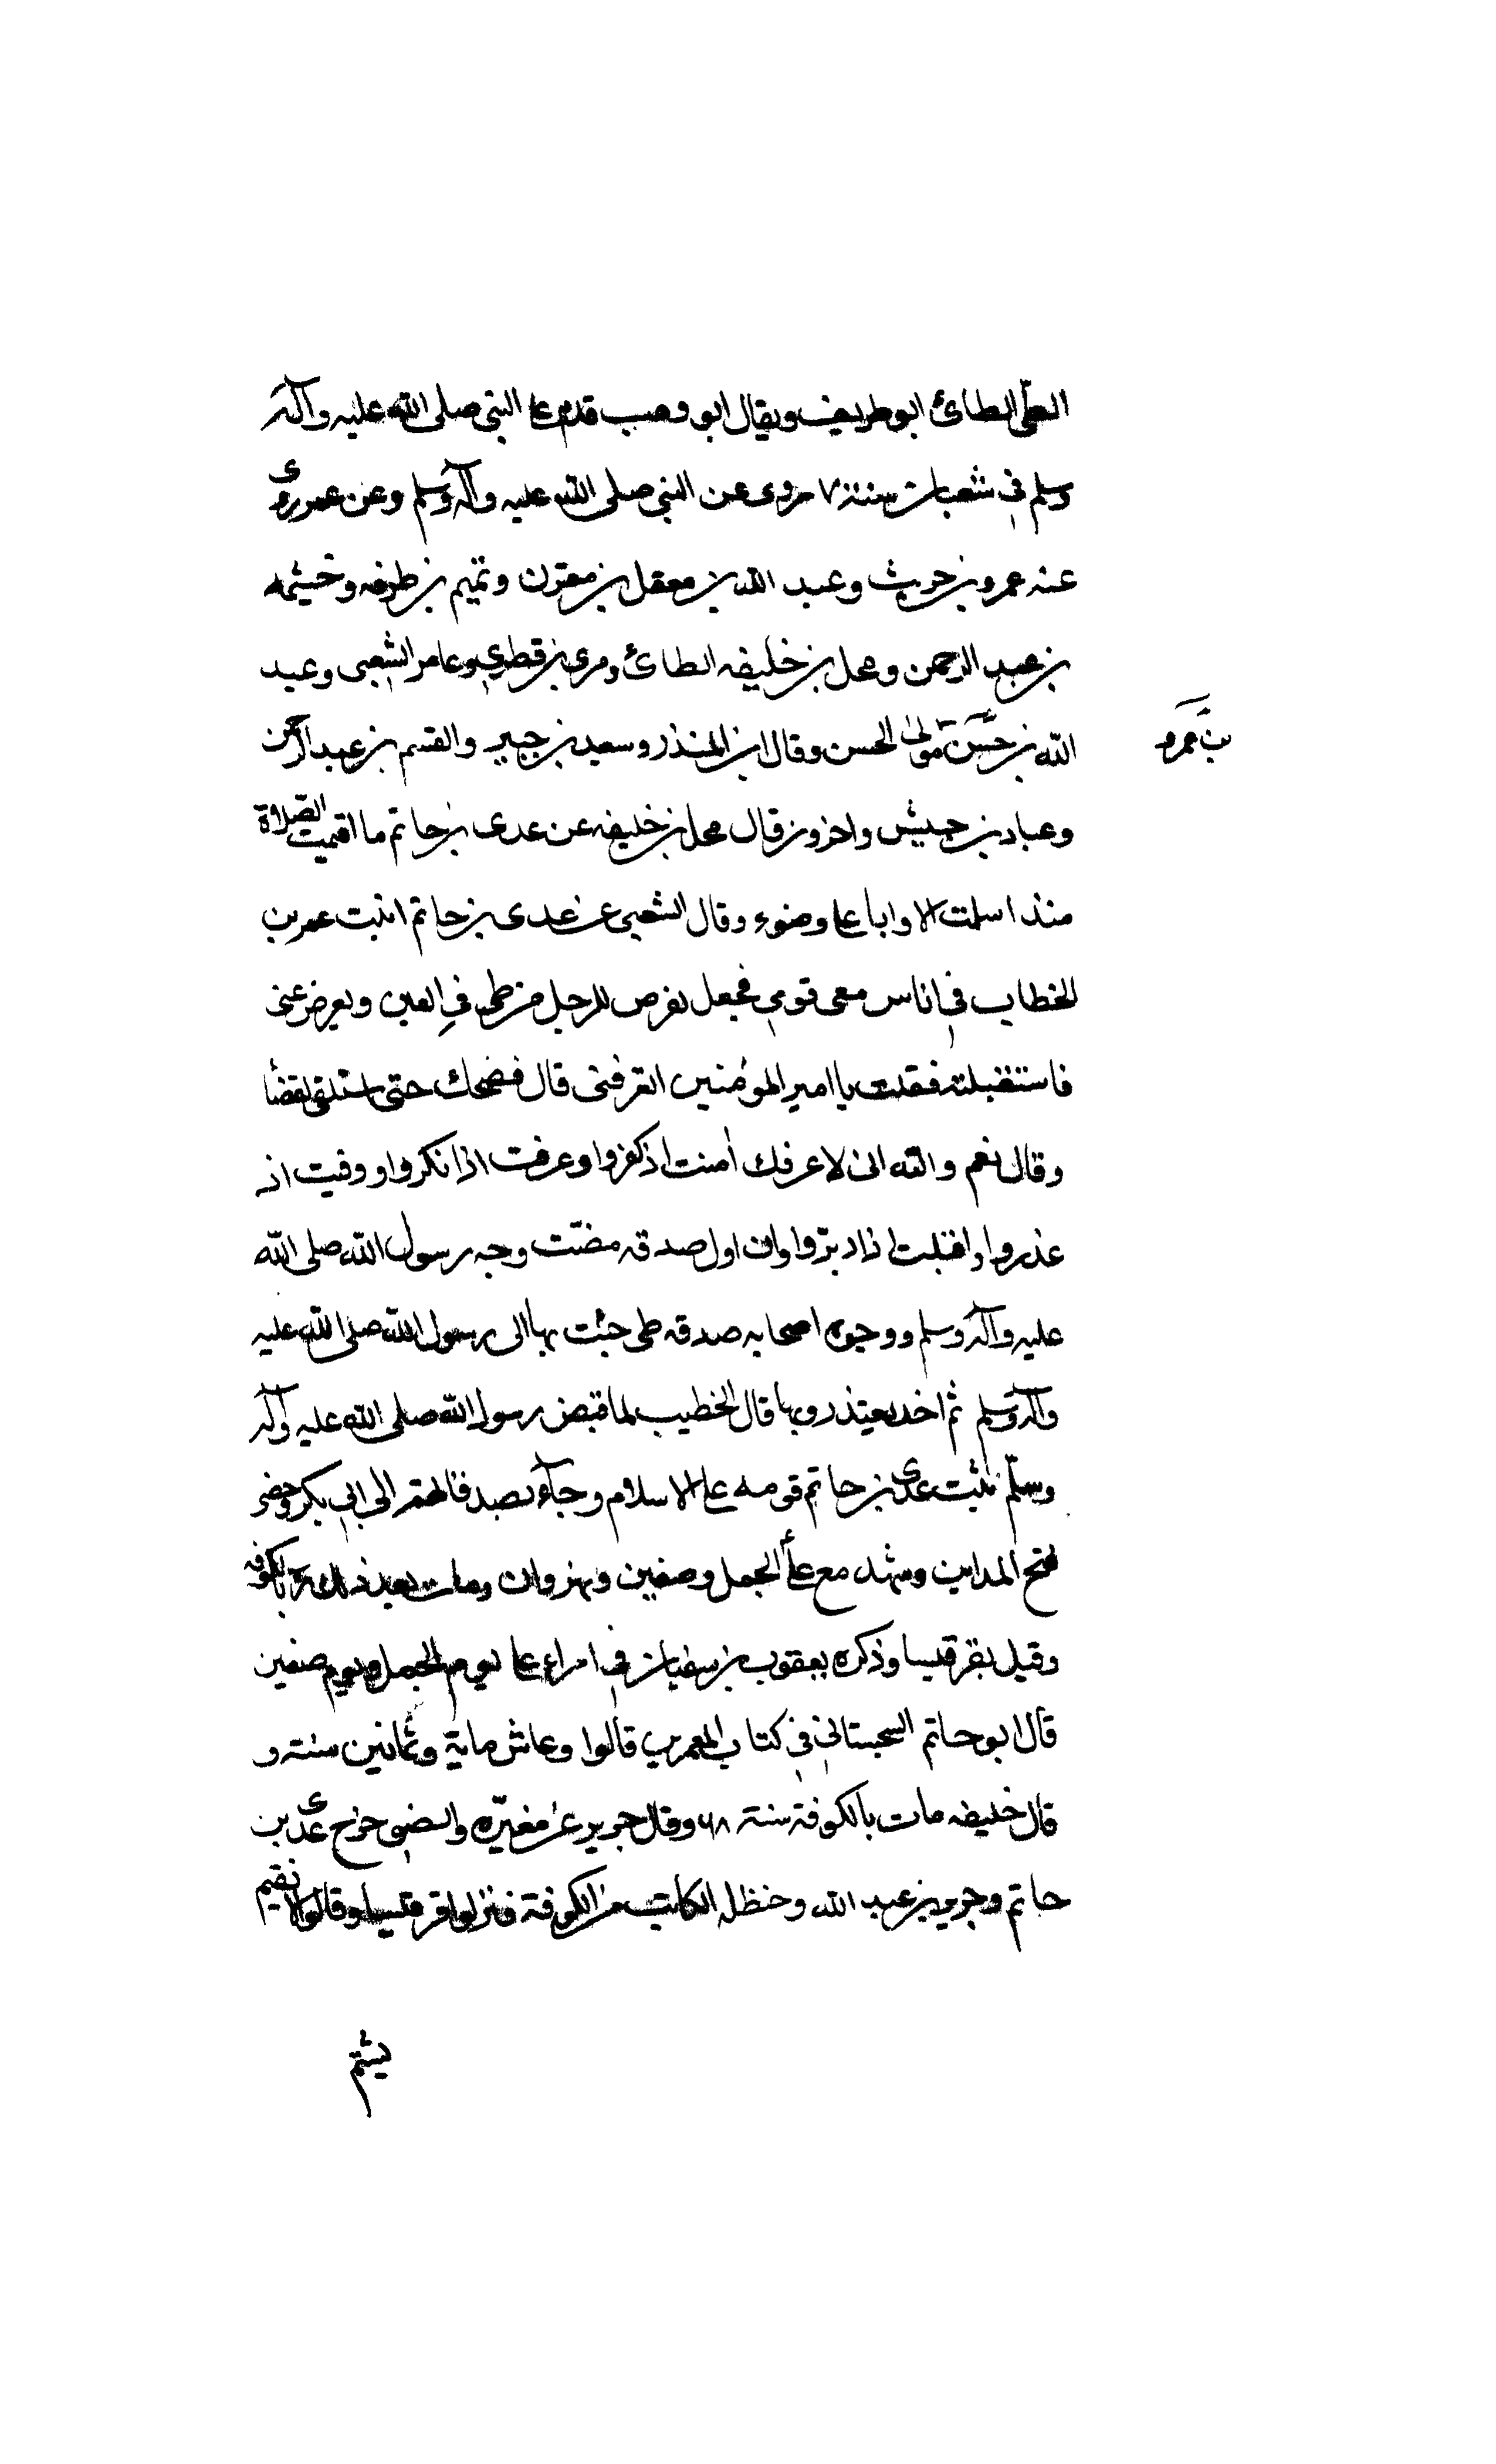 الطى الطائ ابو طريف ويقال ابو وهب قدم على النبى صلى الله عليه وآله
وسلم فى شعبان سنة ٧ روى عن النبى صلى الله عليه وآله وسلم وعن عمر روى
عنه عمرو بن حريث وعبد الله بن معقل بن مقرن وتميم بن طرفه وخيثمه
بن عبد الرحمن ومحل بن خليفه الطائ ومرى بن قطرى وعامر الشعبى وعبد
الله بن عمرو مولى الحسن وقال ابن المنذر وسعيد بن جبير والقسم بن عبد الرحمن
بن عمرو
وعباد بن حبيش واخرون قال محل بن خليفه عن عدى بن حاتم ما اقيمت الصلاة
منذ اسلمت الا وانا على وضوء وقال الشعبى عن عدى بن حاتم اتيت عمر بن
الخطاب فى اناس معى قومى فجعل يفرض للرجل من طى فى الفين ويعرض عنى
فاستقبلته فقلت يا امير المؤمنين اتعرفنى قال فضحك حتى استلقى لقفاه
وقال نعم والله انى لاعرفك أمنت اذ كفروا وعرفت اذ انكروا ووفيت اذ
غدروا واقبلت اذ ادبروا وان اول صدقه بيضت وجه رسول الله صلى الله
عليه وآله وسلم ووجوه اصحابه صدقه طى جئت بها الى رسول الله صلى الله عليه
وآله وسلم ثم اخذ يعتذر وبها قال الخطيب لما قبض رسول الله صلى الله عليه وآله
وسلم ثبت عدى بن حاتم قومه على الاسلام وجآء بصدقاتهم الى ابى بكر وحضر
فتح المداين وشهد مع على الجمل وصفين ونهروان ومات بعد ذلك بالكوفه
وقيل بقرقيسا وذكره يعقوب بن سفيان فى امراء على يوم الجمل ويوم صفين
قال ابو حاتم السجستانى فى كتاب المعمرين قالوا وعاش ماية وثمانين سنة و
قال خليفه مات بالكوفة سنة ٦٨ وقال جرير عن مغيره والضبى خرج عدى بن
حاتم وجرير بن عبد الله وحنظله الكاتب من الكوفة فنزلوا قرقيسيا وقالوا لا نقيم
يشتم